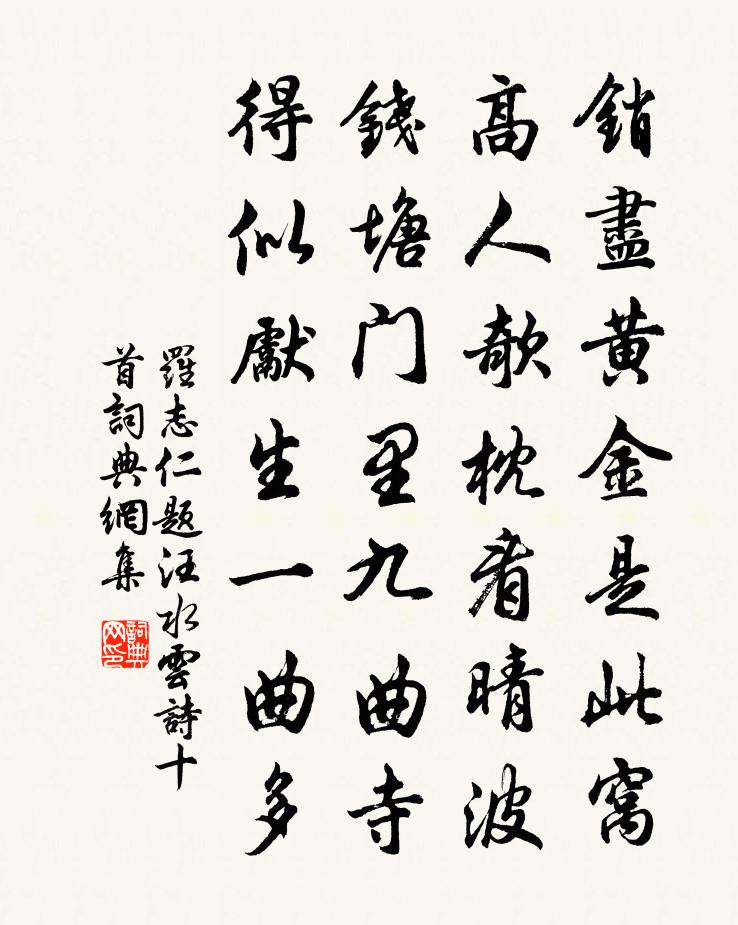 銷盡黃金是此窩
高人欹枕看晴波
錢塘門里九曲寺
得似獻生一曲多
羅志仁題汪水雲詩十
首詞典網集
詞典
网印